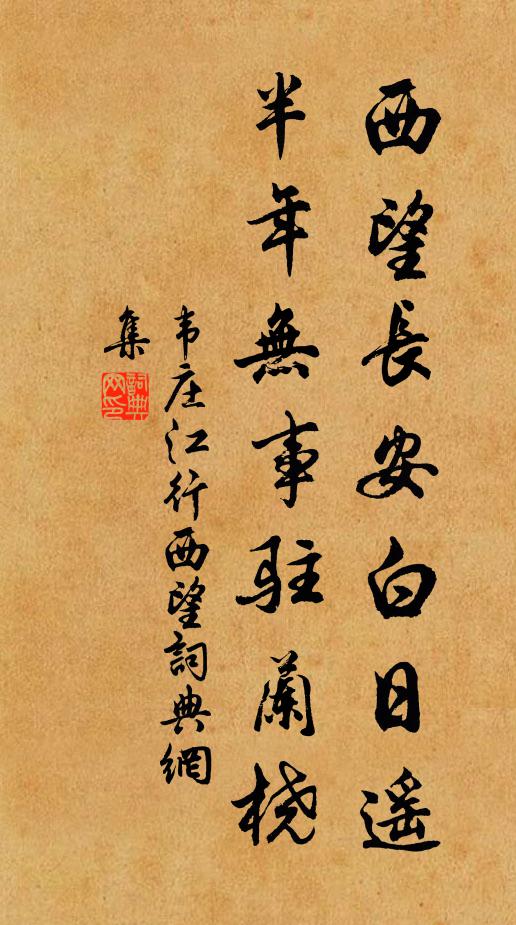 西望長安白日遥
半年無事駐蘭桡
韦庄江行西望詞典網
集
詞典
网印